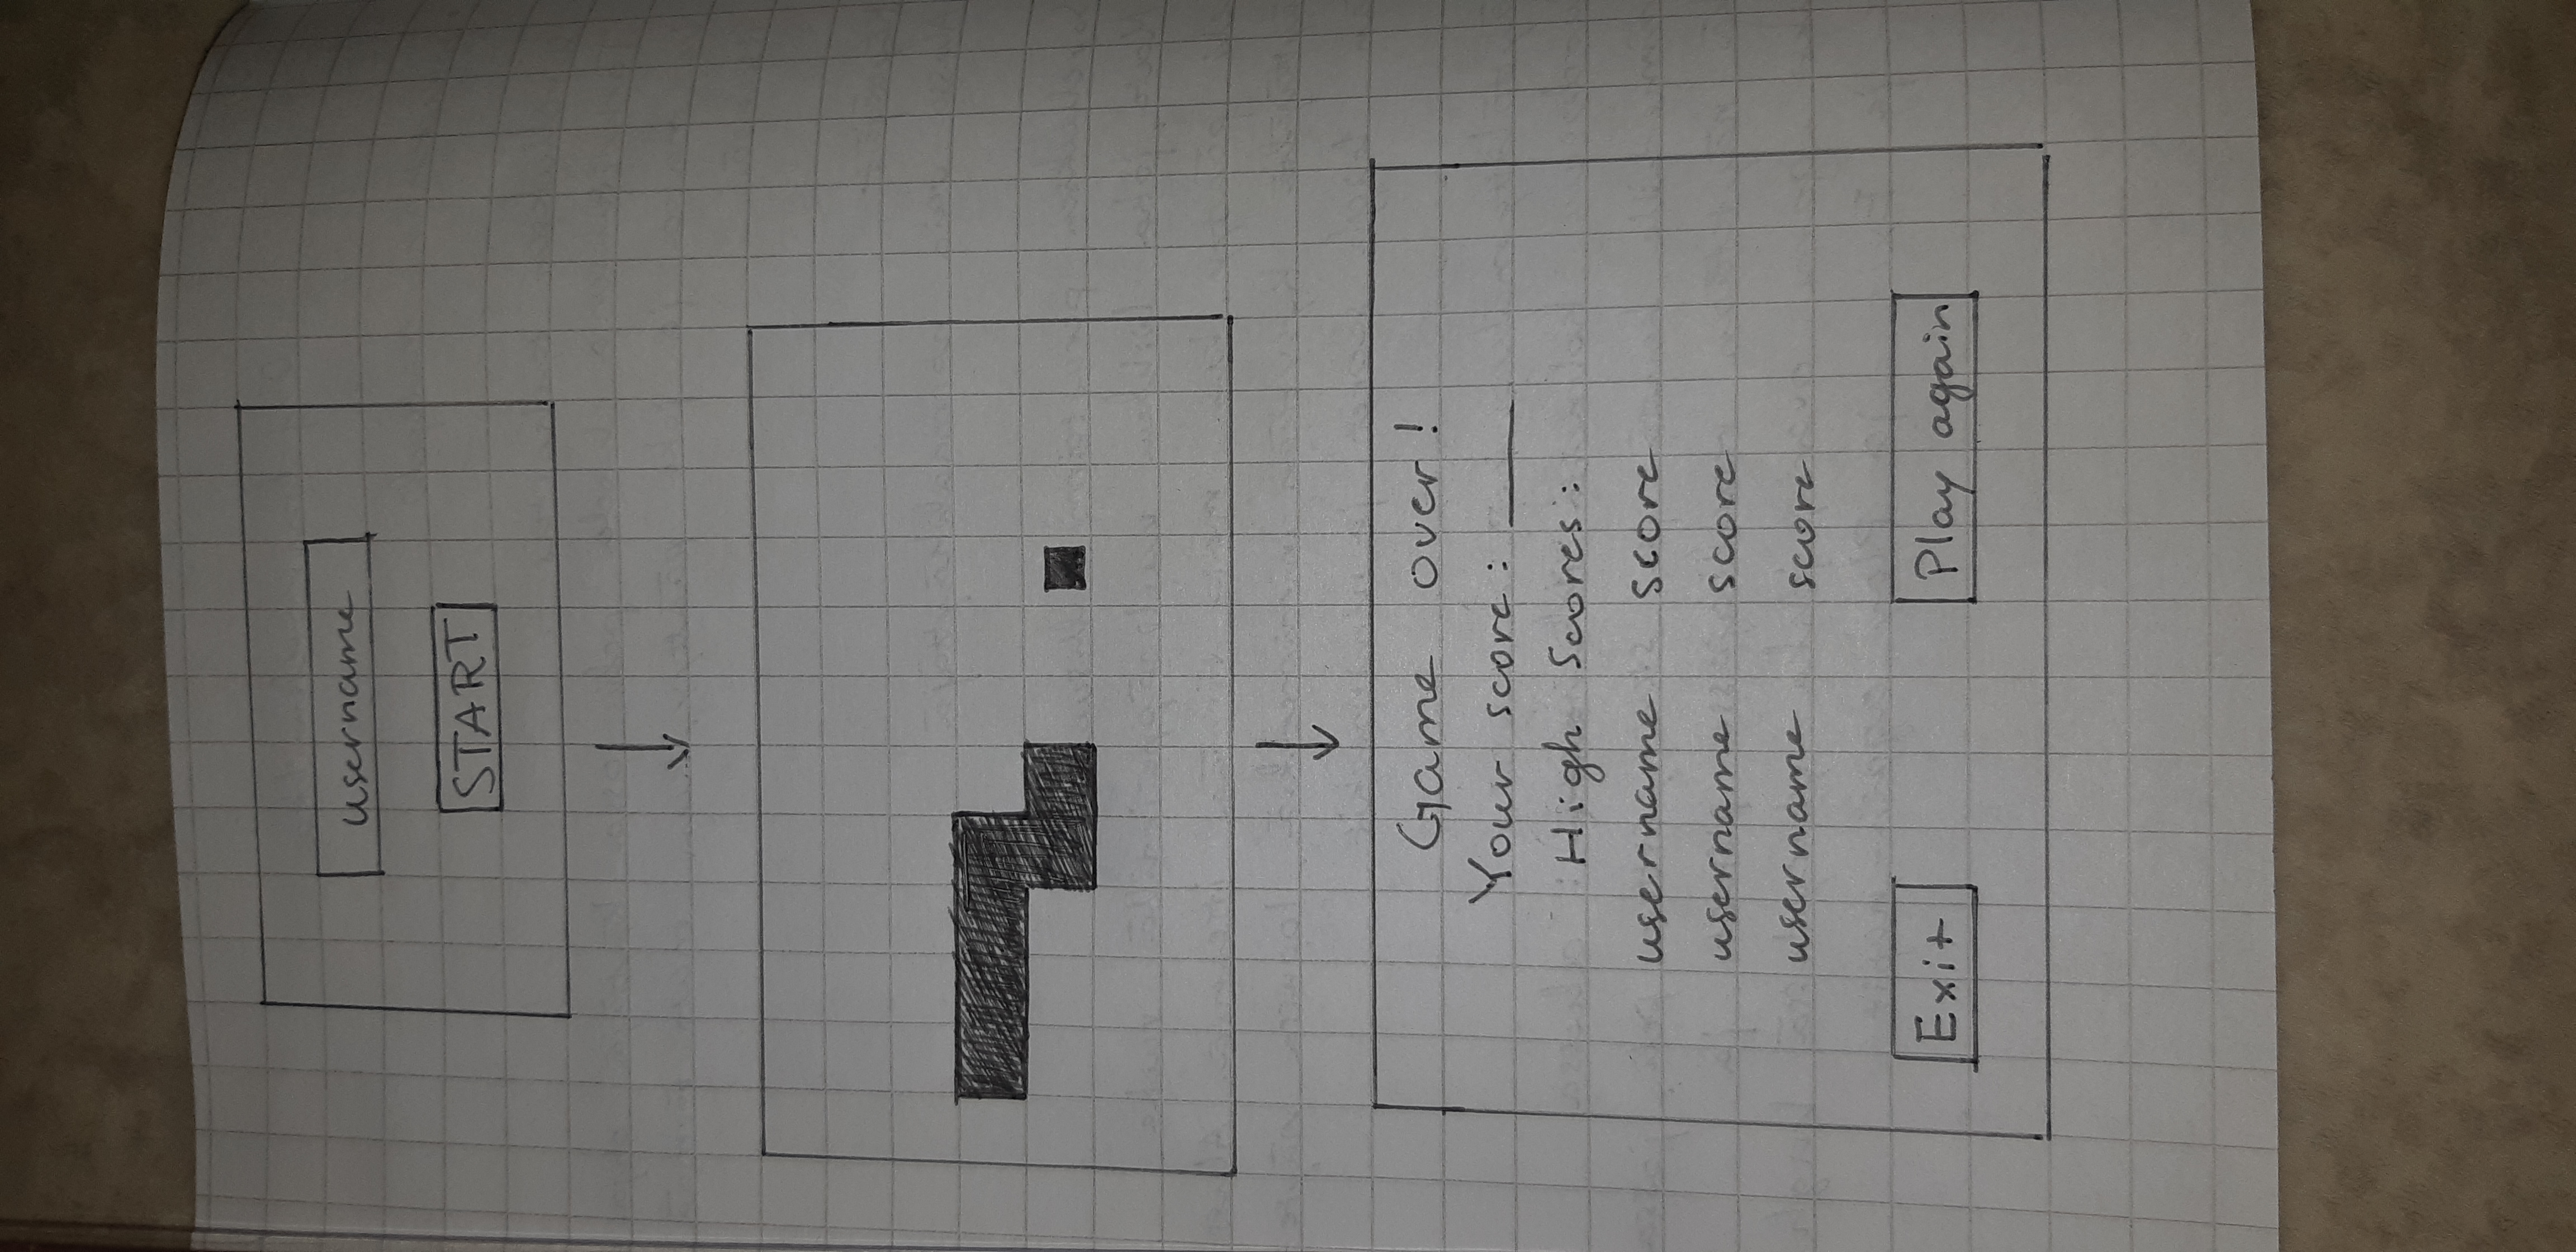 username
START
Game over!
Your score: ____
High Scores:
username score
username score
username score
Exit Play again